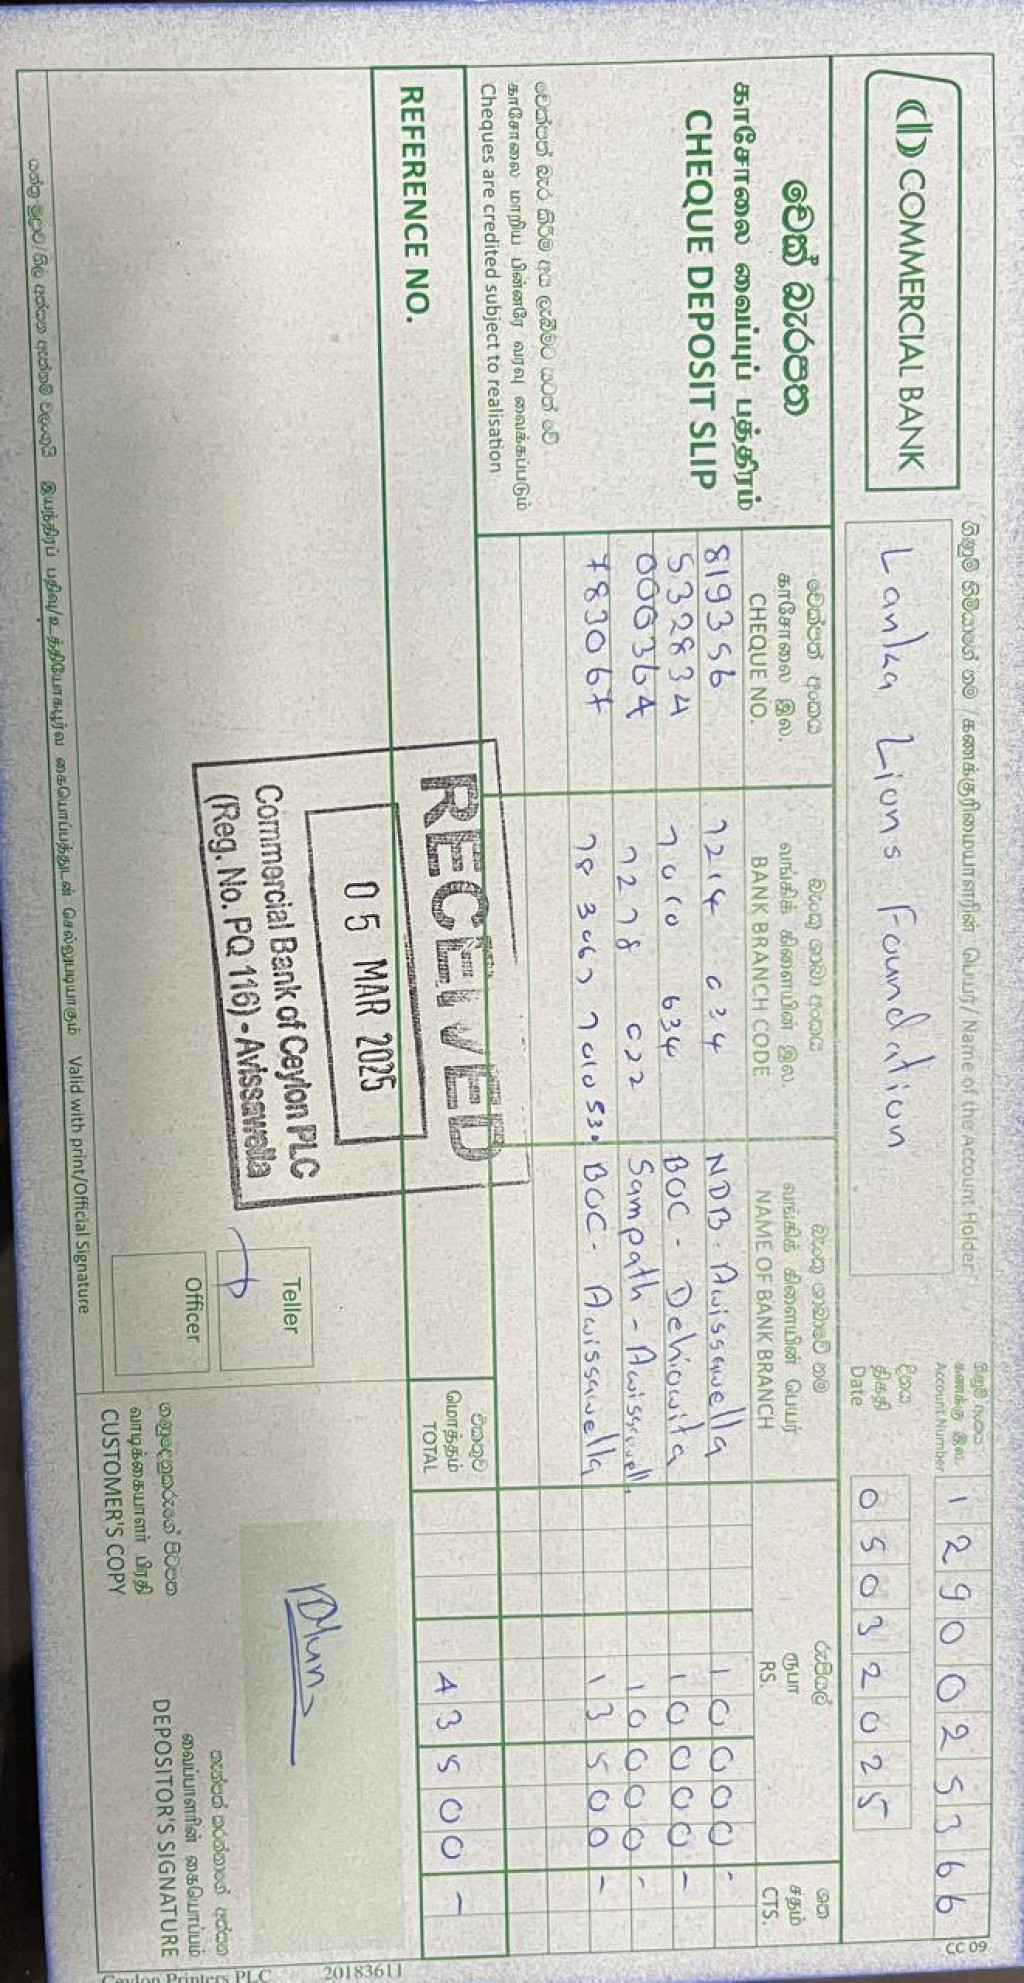 COMMERCIAL BANK
ගිණුම් හිමියාගේ නම / கணக்குரிமையாளரின் பெயர் / Name of the Account Holder
Lanka Lions Foundation
ගිණුම් අංකය
கணக்கு இல.
Account Number
1290025366
දිනය
திகதி
Date
05032025
චෙක් බැරපත
காசோலை வைப்புப் பத்திரம்
CHEQUE DEPOSIT SLIP
චෙක්පත් බැර කිරීම අය ලැබීමට යටත් වේ
காசோலை மாறிய பின்னரே வரவு வைக்கப்படும்
Cheques are credited subject to realisation
චෙක්පත් අංකය
காசோலை இல.
CHEQUE NO.
බැංකු ශාඛා අංකය
வங்கிக் கிளையின் இல.
BANK BRANCH CODE
බැංකු ශාඛාවේ නම
வங்கிக் கிளையின் பெயர்
NAME OF BANK BRANCH
රුපියල්
ரூபா
RS.
ශත
சதம்
CTS.
819356 7214 034 NDB. Avissawella 10000 -
532834 7010 634 BOC - Dehiowita 10000 -
000364 7278 022 Sampath - Avissawella 10000 -
783067 783067 7010 53. BOC - Avissawella 13500 -
එකතුව
மொத்தம்
TOTAL
43500 -
REFERENCE NO.
RECEIVED
05 MAR 2025
Commercial Bank of Ceylon PLC
(Reg. No. PQ 116) - Avissawella
Teller
Officer
ගනුදෙනුකරුගේ පිටපත
வாடிக்கையாளர் பிரதி
CUSTOMER'S COPY
තැන්පත් කරන්නාගේ අත්සන
வைப்பாளரின் கையொப்பம்
DEPOSITOR'S SIGNATURE
යන්ත්‍ර මුද්‍රාව/නිල අත්සන ඇත්නම් වලංගුයි இயந்திரப் பதிவு/உத்தியோகபூர்வ கையொப்பத்துடன் செல்லுபடியாகும் Valid with print/Official Signature
CC 09
Ceylon Printers PLC 20183611